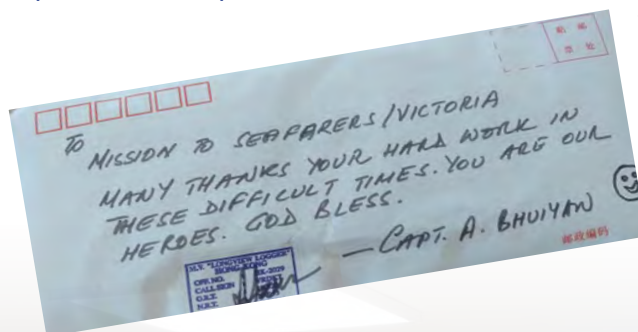 贴 邮
票 处
TO
MISSION TO SEAFARERS/VICTORIA
MANY THANKS YOUR HARD WORK IN
THESE DIFFICULT TIMES. YOU ARE OUR
HEROES. GOD BLESS.
— CAPT. A. BHUIYAN
邮政编码
M.V. "LONGVIEW LOGGER"
HONG KONG
OFF. NO. HK-2029
CALL SIGN
G.R.T.
N.R.T.